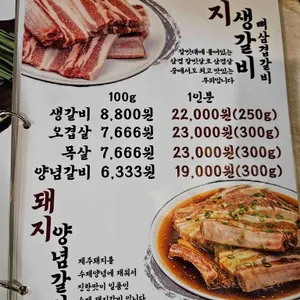 지
생갈비
뼈삼겹갈비
갈빗대에 붙어있는
삼겹 갈빗살로 삼겹살
중에서도 최고 맛있는
부위입니다
100g 1인분
생갈비 8,800원 22,000원(250g)
오겹살 7,666원 23,000원(300g)
목살 7,666원 23,000원(300g)
양념갈비 6,333원 19,000원(300g)
돼지
양념갈비
제주돼지를
수제양념에 재워서
진한맛이 일품인
수제 돼지갈비 입니다